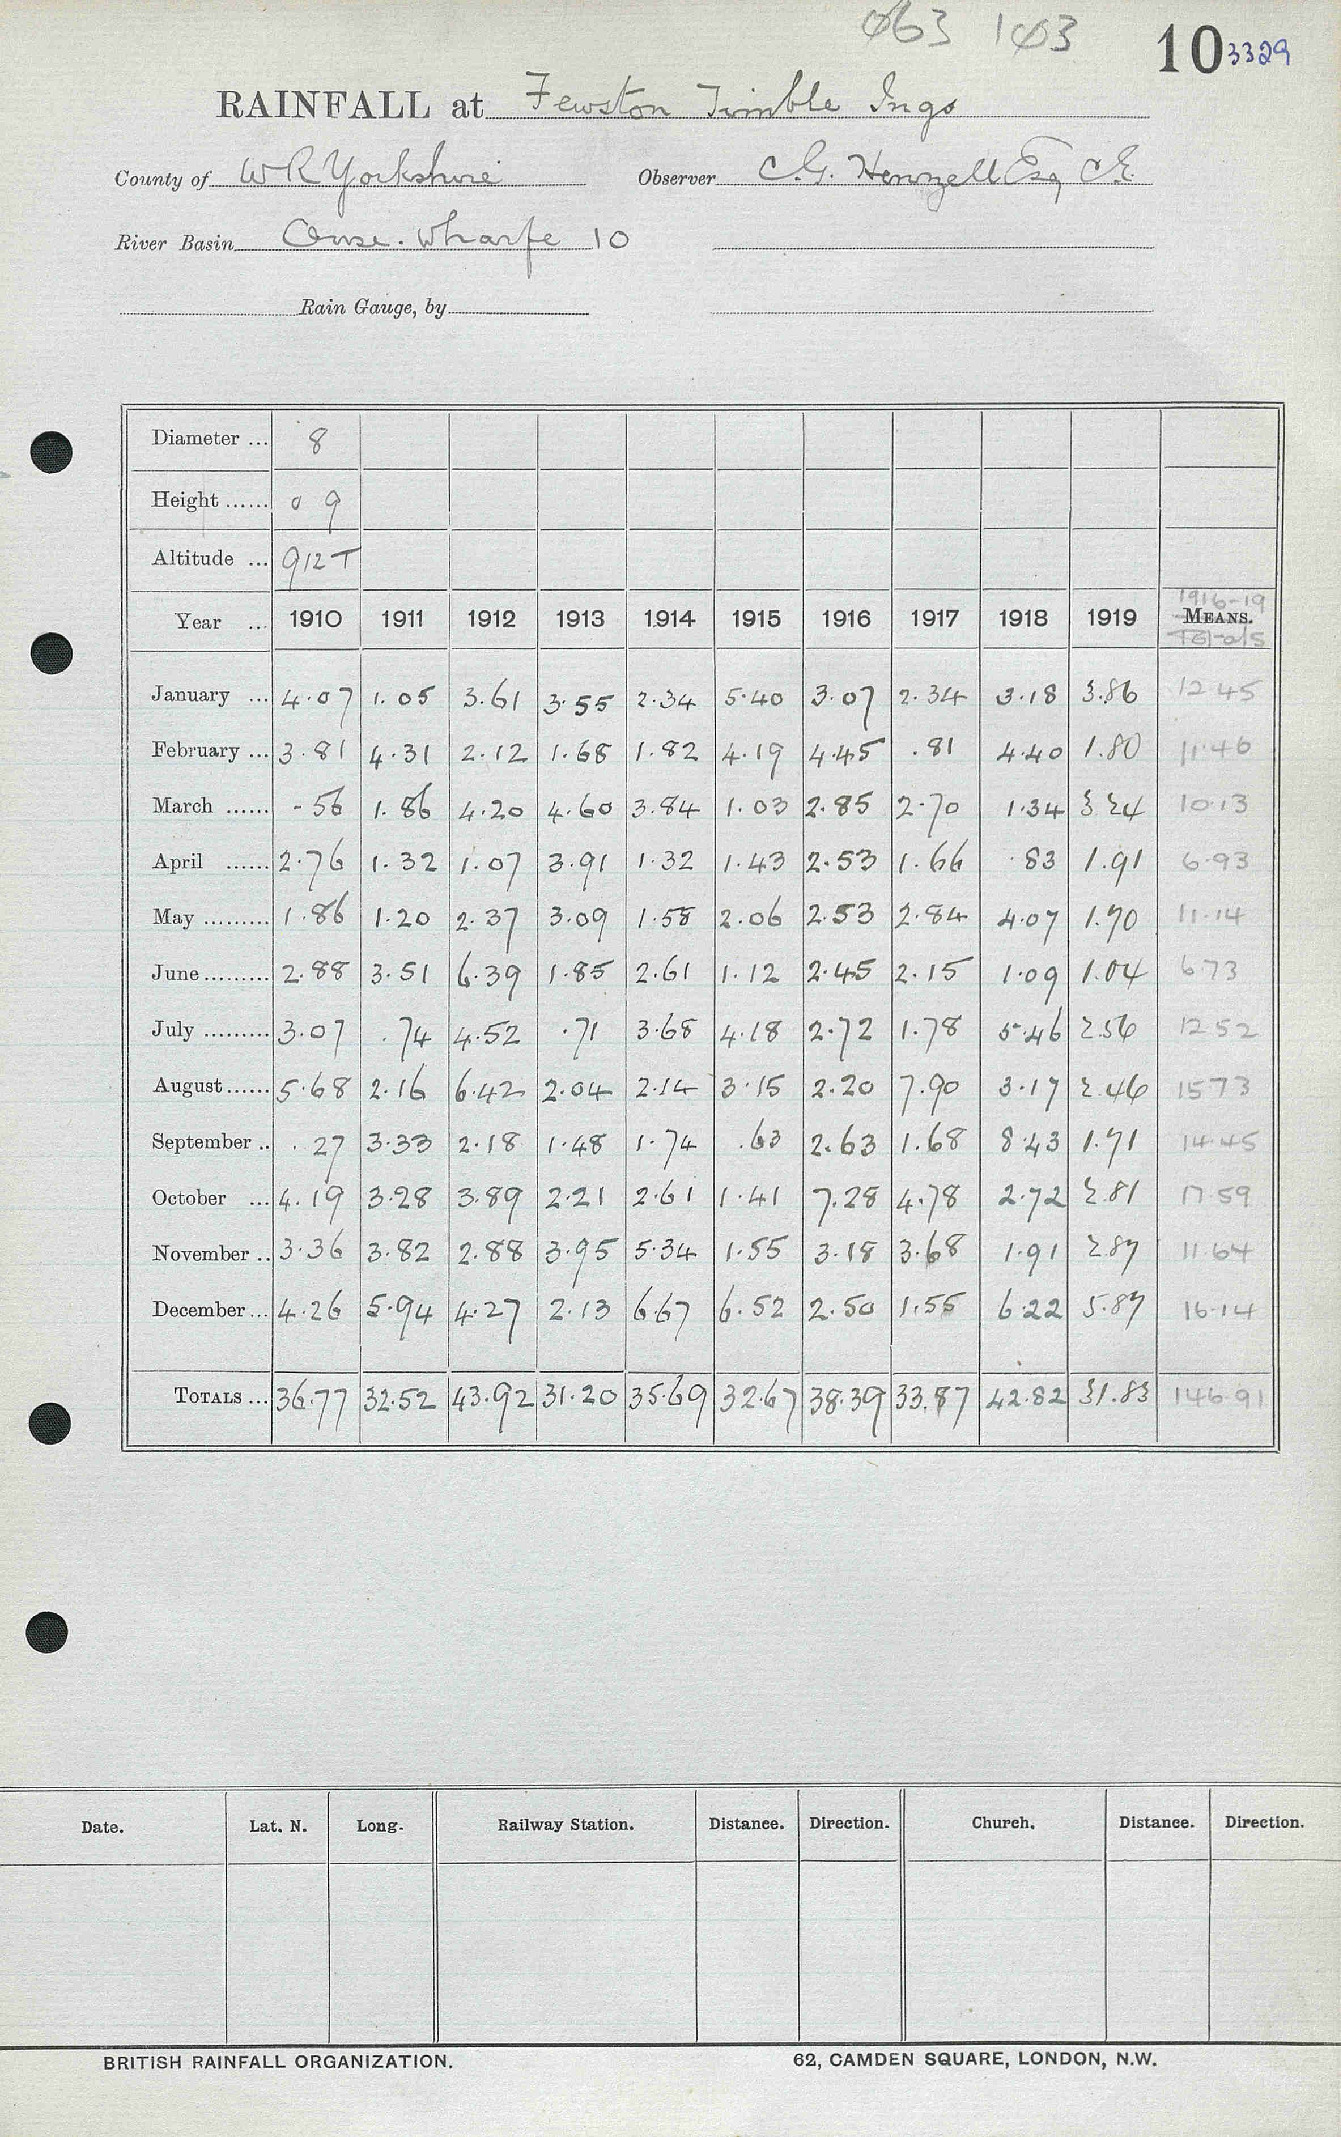 063 103
10 3329
RAINFALL at Fewston Timble Ings
County of W R Yorkshire Observer C.G. Henzell Esq C.E.
River Basin Ouse. Wharfe 10
Rain Gauge, by
Diameter ... 8
Height ...... 0 9
Altitude ... 912 T
1916-19
Year ... 1910 1911 1912 1913 1914 1915 1916 1917 1918 1919 MEANS.
Totals
January ... 4.07 1.05 3.61 3.55 2.34 5.40 3.07 2.34 3.18 3.86 12.45
February ... 3.81 4.31 2.12 1.68 1.82 4.19 4.45 .81 4.40 1.80 11.46
March ...... .56 1.86 4.20 4.60 3.84 1.03 2.85 2.70 1.34 3.24 10.13
April ...... 2.76 1.32 1.07 3.91 1.32 1.43 2.53 1.66 .83 1.91 6.93
May ......... 1.86 1.20 2.37 3.09 1.58 2.06 2.53 2.84 4.07 1.70 11.14
June ......... 2.88 3.51 6.39 1.85 2.61 1.12 2.45 2.15 1.09 1.04 6.73
July ......... 3.07 .74 4.52 .71 3.68 4.18 2.72 1.78 5.46 2.56 12.52
August ...... 5.68 2.16 6.42 2.04 2.14 3.15 2.20 7.90 3.17 2.46 15.73
September .. .27 3.33 2.18 1.48 1.74 .63 2.63 1.68 8.43 1.71 14.45
October ... 4.19 3.28 3.89 2.21 2.61 1.41 7.28 4.78 2.72 2.81 17.59
November .. 3.36 3.82 2.88 3.95 5.34 1.55 3.18 3.68 1.91 2.87 11.64
December ... 4.26 5.94 4.27 2.13 6.67 6.52 2.50 1.55 6.22 5.87 16.14
TOTALS ... 36.77 32.52 43.92 31.20 35.69 32.67 38.39 33.87 42.82 31.83 146.91
Date. Lat. N. Long. Railway Station. Distance. Direction. Church. Distance. Direction.
BRITISH RAINFALL ORGANIZATION. 62, CAMDEN SQUARE, LONDON, N.W.